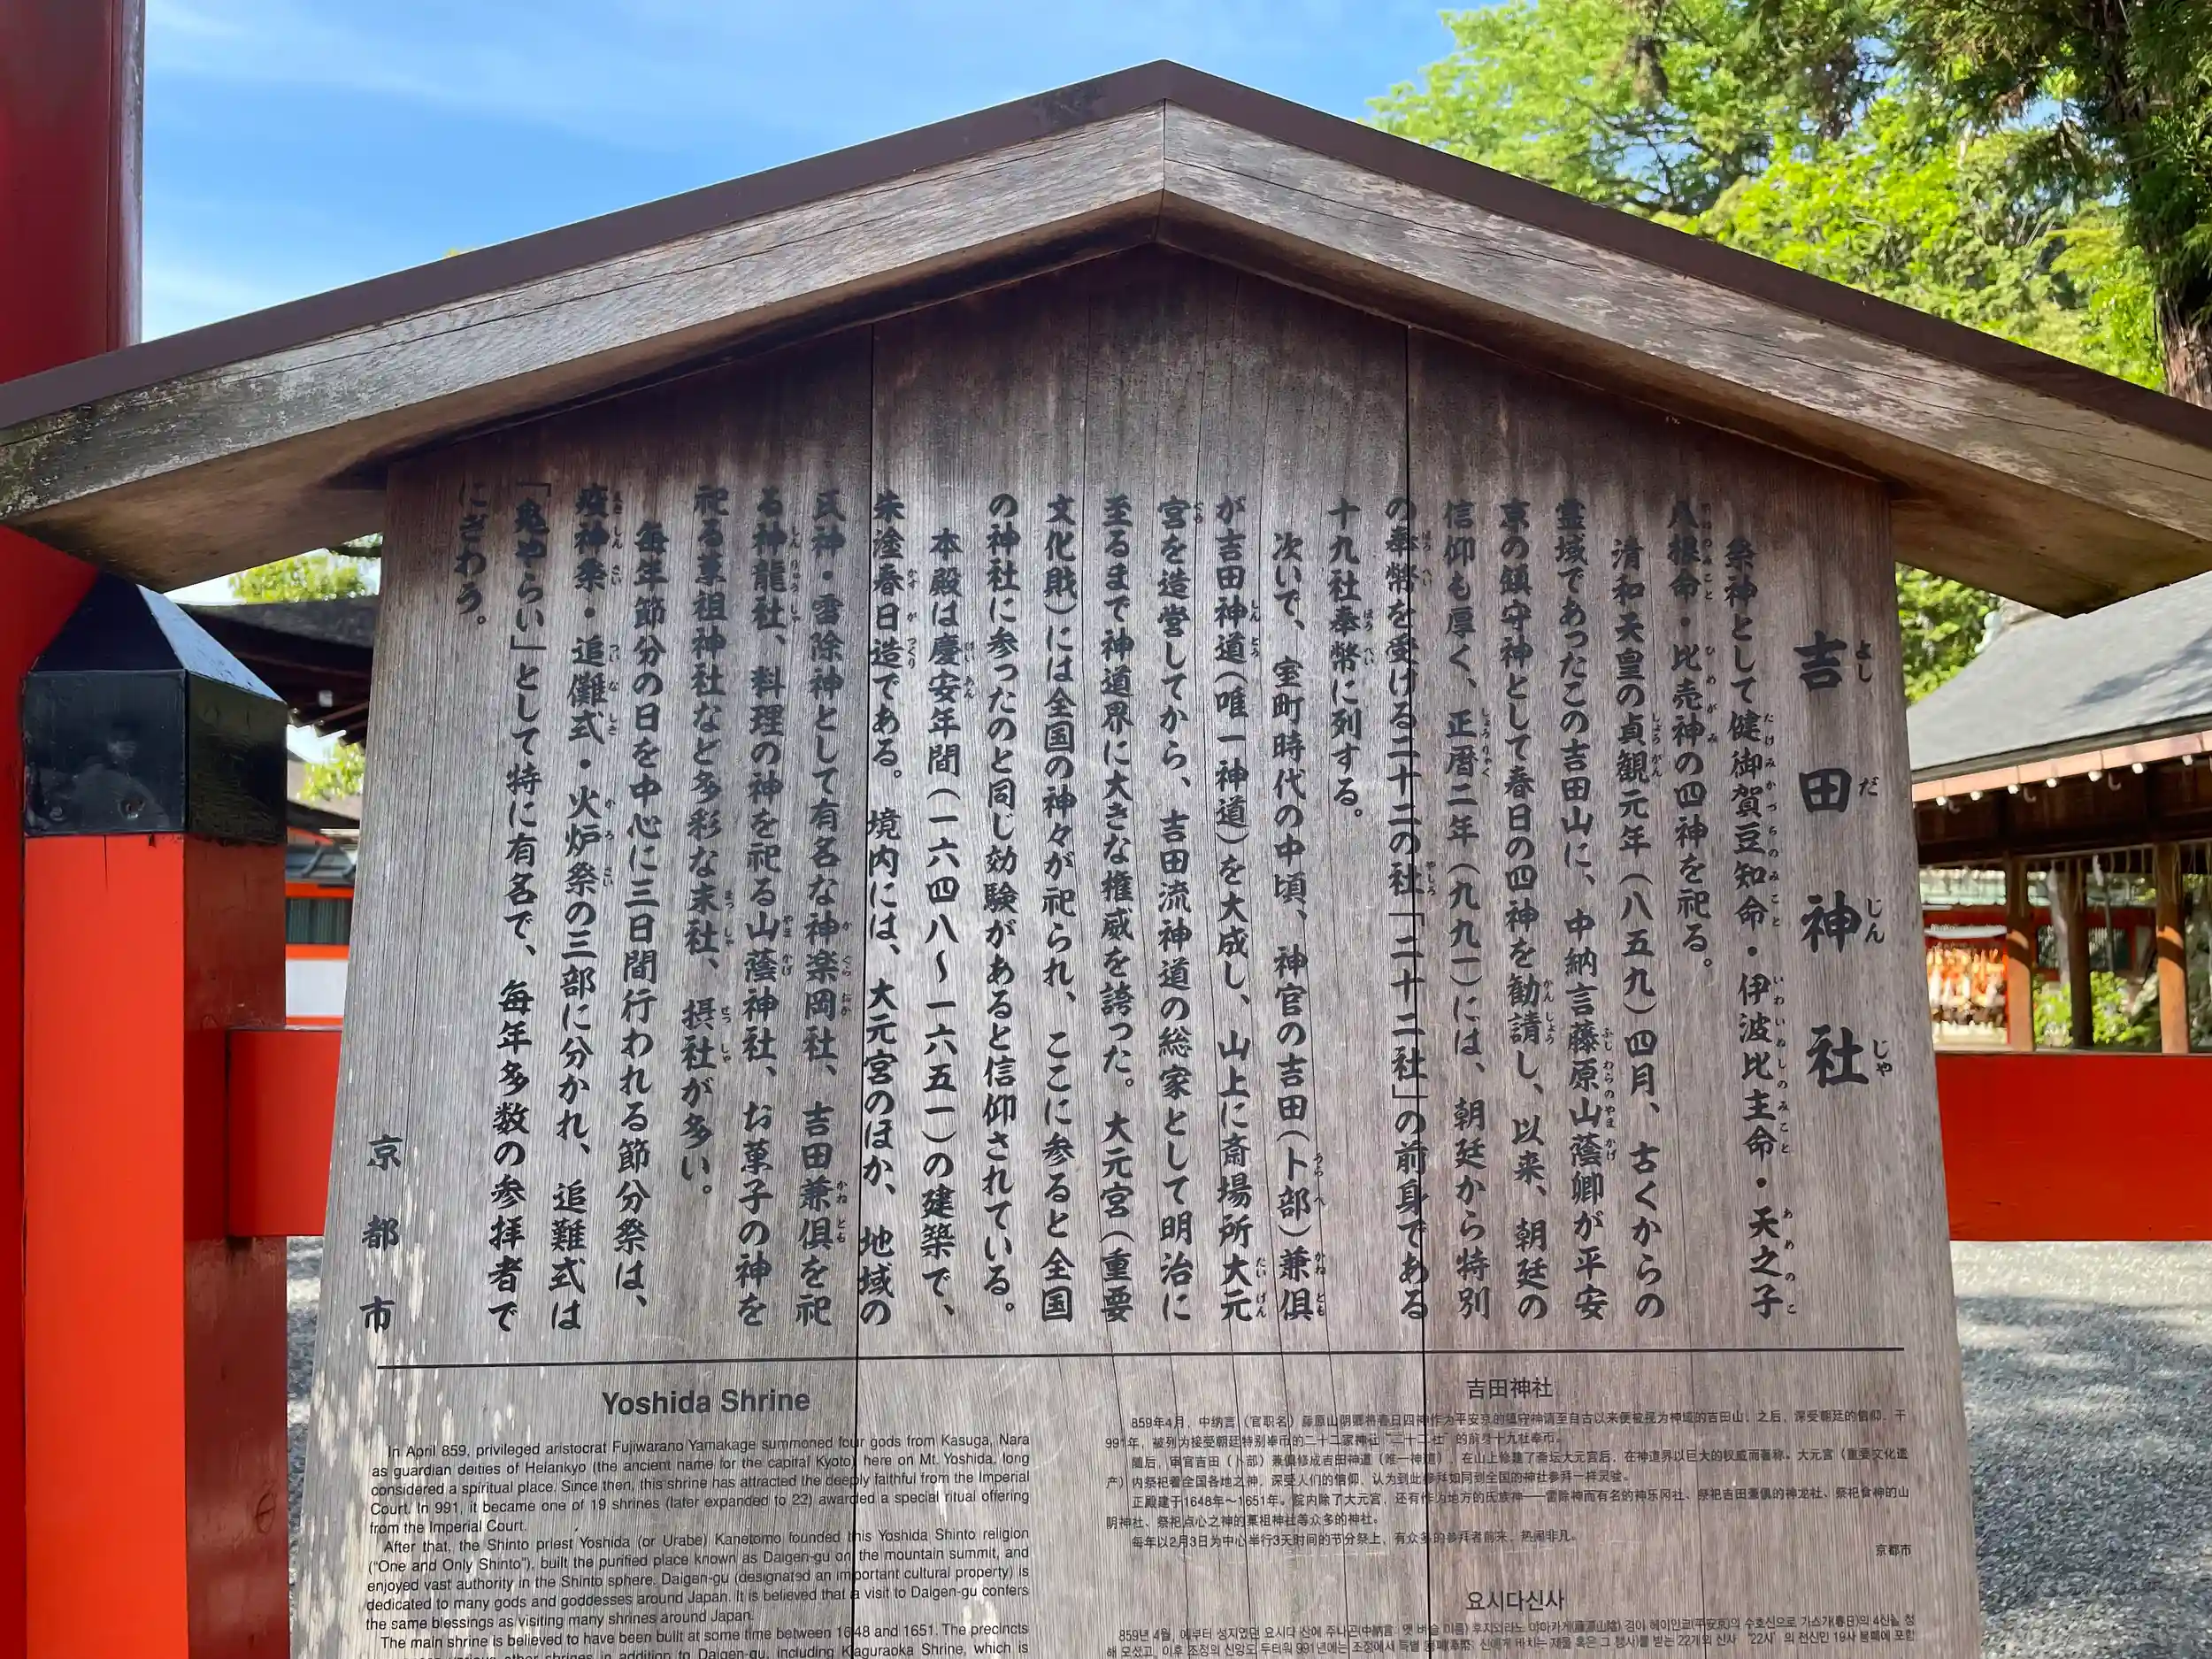 吉田神社
祭神として健御賀豆知命・伊波比主命・天之子
八根命・比売神の四神を祀る。
清和天皇の貞観元年（八五九）四月、古くからの
霊域であったこの吉田山に、中納言藤原山蔭卿が平安
京の鎮守神として春日の四神を勧請し、以来、朝廷の
信仰も厚く、正暦二年（九九一）には、朝廷から特別
の奉幣を受ける二十二の社「二十二社」の前身である
十九社奉幣に列する。
次いで、室町時代の中頃、神官の吉田（卜部）兼倶
が吉田神道（唯一神道）を大成し、山上に斎場所大元
宮を造営してから、吉田流神道の総家として明治に
至るまで神道界に大きな権威を誇った。大元宮（重要
文化財）には全国の神々が祀られ、ここに参ると全国
の神社に参ったのと同じ効験があると信仰されている。
本殿は慶安年間（一六四八〜一六五一）の建築で、
朱塗春日造である。境内には、大元宮のほか、地域の
氏神・雷除神として有名な神楽岡社、吉田兼倶を祀
る神龍社、料理の神を祀る山蔭神社、お菓子の神を
祀る菓祖神社など多彩な末社、摂社が多い。
毎年節分の日を中心に三日間行われる節分祭は、
疫神祭・追儺式・火炉祭の三部に分かれ、追難式は
「鬼やらい」として特に有名で、毎年多数の参拝者で
にぎわう。
京都市
Yoshida Shrine
In April 859, privileged aristocrat Fujiwarano Yamakage summoned four gods from Kasuga, Nara
as guardian deities of Heiankyo (the ancient name for the capital Kyoto) here on Mt. Yoshida, long
considered a spiritual place. Since then, this shrine has attracted the deeply faithful from the Imperial
Court. In 991, it became one of 19 shrines (later expanded to 22) awarded a special ritual offering
from the Imperial Court.
After that, the Shinto priest Yoshida (or Urabe) Kanetomo founded this Yoshida Shinto religion
("One and Only Shinto"), built the purified place known as Daigen-gu on the mountain summit, and
enjoyed vast authority in the Shinto sphere. Daigen-gu (designated an important cultural property) is
dedicated to many gods and goddesses around Japan. It is believed that a visit to Daigen-gu confers
the same blessings as visiting many shrines around Japan.
The main shrine is believed to have been built at some time between 1648 and 1651. The precincts
various other shrines in addition to Daigen-gu, including Kaguraoka Shrine, which is
吉田神社
859年4月，中纳言（官职名）藤原山阴卿将春日四神作为平安京的镇守神请至自古以来便被视为神域的吉田山。之后，深受朝廷的信仰，于
991年，被列为接受朝廷特别奉币的二十二家神社"二十二社"的前身十九社奉币。
随后，审官吉田（卜部）兼俱修成吉田神道（唯一神道），在山上修建了斋坛大元宫后，在神道界以巨大的权威而著称。大元宫（重要文化遗
产）内祭祀着全国各地之神，深受人们的信仰，认为到此参拜如同到全国的神社参拜一样灵验。
正殿建于1648年～1651年。院内除了大元宫，还有作为地方的氏族神——雷除神而有名的神乐冈社、祭祀吉田兼俱的神龙社、祭祀食神的山
阴神社、祭祀点心之神的菓祖神社等众多的神社。
每年以2月3日为中心举行3天时间的节分祭上，有众多的参拜者前来，热闹非凡。
京都市
요시다신사
859년 4월, 예부터 성지였던 요시다 산에 주나곤(中納言: 옛 벼슬 이름) 후지와라노 야마카게(藤原山陰) 경이 헤이안쿄(平安京)의 수호신으로 가스가(春日)의 4신을 청
해 모셨고, 이후 조정의 신앙도 두터워 991년에는 조정에서 특별 봉폐(奉幣: 신에게 바치는 재물 혹은 그 행사)를 받는 22개의 신사 "22사"의 전신인 19사 봉폐에 포함